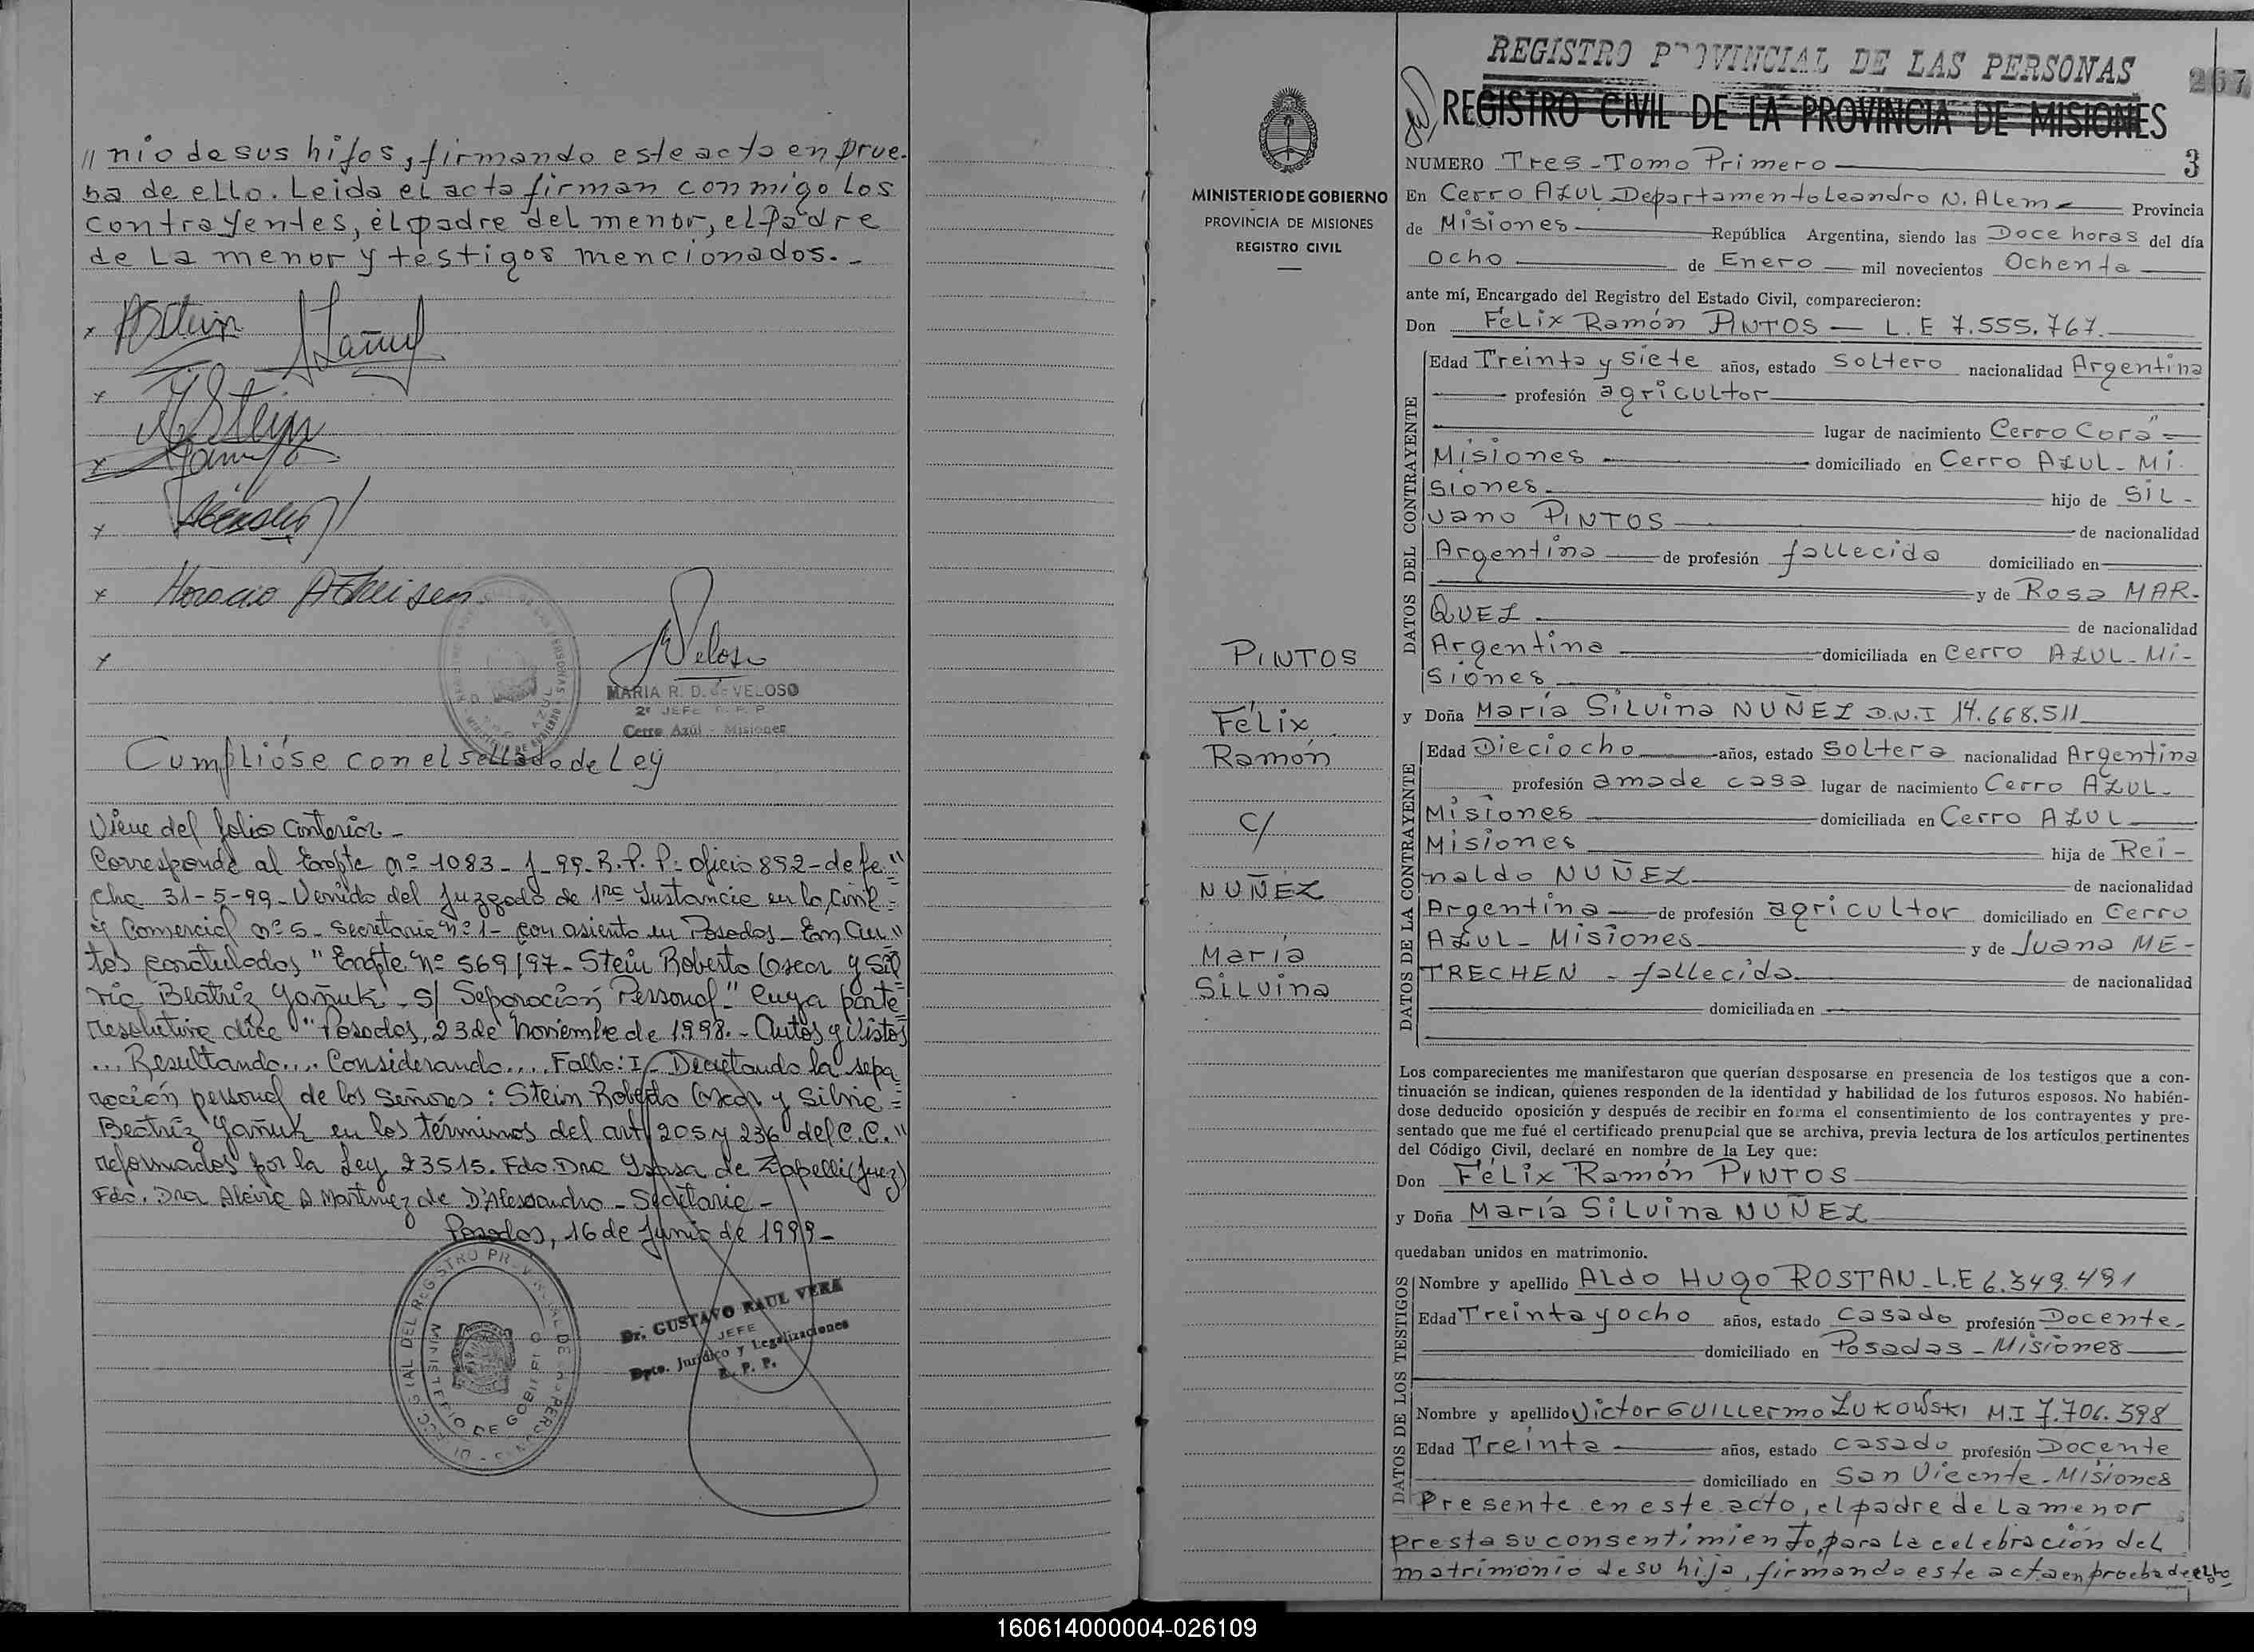 // nio de sus hijos, firmando este acta en prue-
ba de ello. Leida el acta firman conmigo los
contrayentes, el padre del menor, el padre
de la menor y testigos mencionados.-
Horacio A
Veloso
MARIA R. D. de VELOSO
2º JEFE R. P. P.
Cerro Azúl - Misiones
Cumplióse con el sellado de Ley
Viene del folio anterior -
Corresponde al Expte nº 1083-J-99-R.P.P. oficio 852-de fe "
cha 31-5-99- Venido del Juzgado de 1ra Instancia en lo Civil =
y Comercial nº 5- Secretaria nº 1- con asiento en Posadas- En Au "
tos caratulados "Expte nº 569/97- Stein Roberto Oscar y Sil
via Beatriz Yañuk S/ Separación Personal" cuya parte
resolutiva dice "Posadas, 23 de Noviembre de 1998.- Autos y Vistos
... Resultando.... Considerando.... Fallo: I- Decretando la sepa
ración personal de los Señores: Stein Roberto Oscar y Silvia =
Beatriz Yañuk en los términos del art 205 y 236 del C.C. "
reformados por la Ley 23515. Fdo. Dra Ysasa de Zappelli (Juez)
Fdo. Dra Alcira A Martinez de D'Alessandro - Secretaria -
Posadas, 16 de Junio de 1999-
Dr. GUSTAVO RAUL VERA
JEFE
Dpto. Jurídico y Legalizaciones
R. P. P.
MINISTERIO DE GOBIERNO
PROVINCIA DE MISIONES
REGISTRO CIVIL
PINTOS
Félix
Ramón
c/
NUÑEZ
María
Silvina
REGISTRO PROVINCIAL DE LAS PERSONAS
267
REGISTRO CIVIL DE LA PROVINCIA DE MISIONES
NUMERO Tres - Tomo Primero 3
En Cerro Azul Departamento Leandro N. Alem Provincia
de Misiones República Argentina, siendo las Doce horas del día
Ocho de Enero mil novecientos Ochenta
ante mí, Encargado del Registro del Estado Civil, comparecieron:
Don Félix Ramón PINTOS - L.E 7.555.767.
DATOS DEL CONTRAYENTE
Edad Treinta y siete años, estado soltero nacionalidad Argentina
profesión agricultor
lugar de nacimiento Cerro Corá
Misiones domiciliado en Cerro Azul - Mi
siones hijo de Sil-
vano PINTOS de nacionalidad
Argentina de profesión fallecido domiciliado en
y de Rosa MAR-
QUEZ de nacionalidad
Argentina domiciliada en Cerro Azul - Mi-
siones
y Doña María Silvina NUÑEZ D.N.I 14.668.511
DATOS DE LA CONTRAYENTE
Edad Dieciocho años, estado soltera nacionalidad Argentina
profesión ama de casa lugar de nacimiento Cerro Azul -
Misiones domiciliada en Cerro Azul
Misiones hija de Rei-
naldo NUÑEZ de nacionalidad
Argentina de profesión agricultor domiciliado en Cerro
Azul - Misiones y de Juana ME-
TRECHEN - fallecida de nacionalidad
domiciliada en
Los comparecientes me manifestaron que querían desposarse en presencia de los testigos que a con-
tinuación se indican, quienes responden de la identidad y habilidad de los futuros esposos. No habién-
dose deducido oposición y después de recibir en forma el consentimiento de los contrayentes y pre-
sentado que me fué el certificado prenupcial que se archiva, previa lectura de los artículos pertinentes
del Código Civil, declaré en nombre de la Ley que:
Don Félix Ramón PINTOS
y Doña María Silvina NUÑEZ
quedaban unidos en matrimonio.
DATOS DE LOS TESTIGOS
Nombre y apellido Aldo Hugo ROSTAN - L.E 6.349.491
Edad Treinta y ocho años, estado casado profesión Docente
domiciliado en Posadas - Misiones
Nombre y apellido Victor Guillermo ZUKOWSKI M.I 7.706.398
Edad Treinta años, estado casado profesión Docente
domiciliado en San Vicente - Misiones
Presente en este acto, el padre de la menor
presta su consentimiento para la celebración del
matrimonio de su hija, firmando este acta en prueba de ello
160614000004-026109